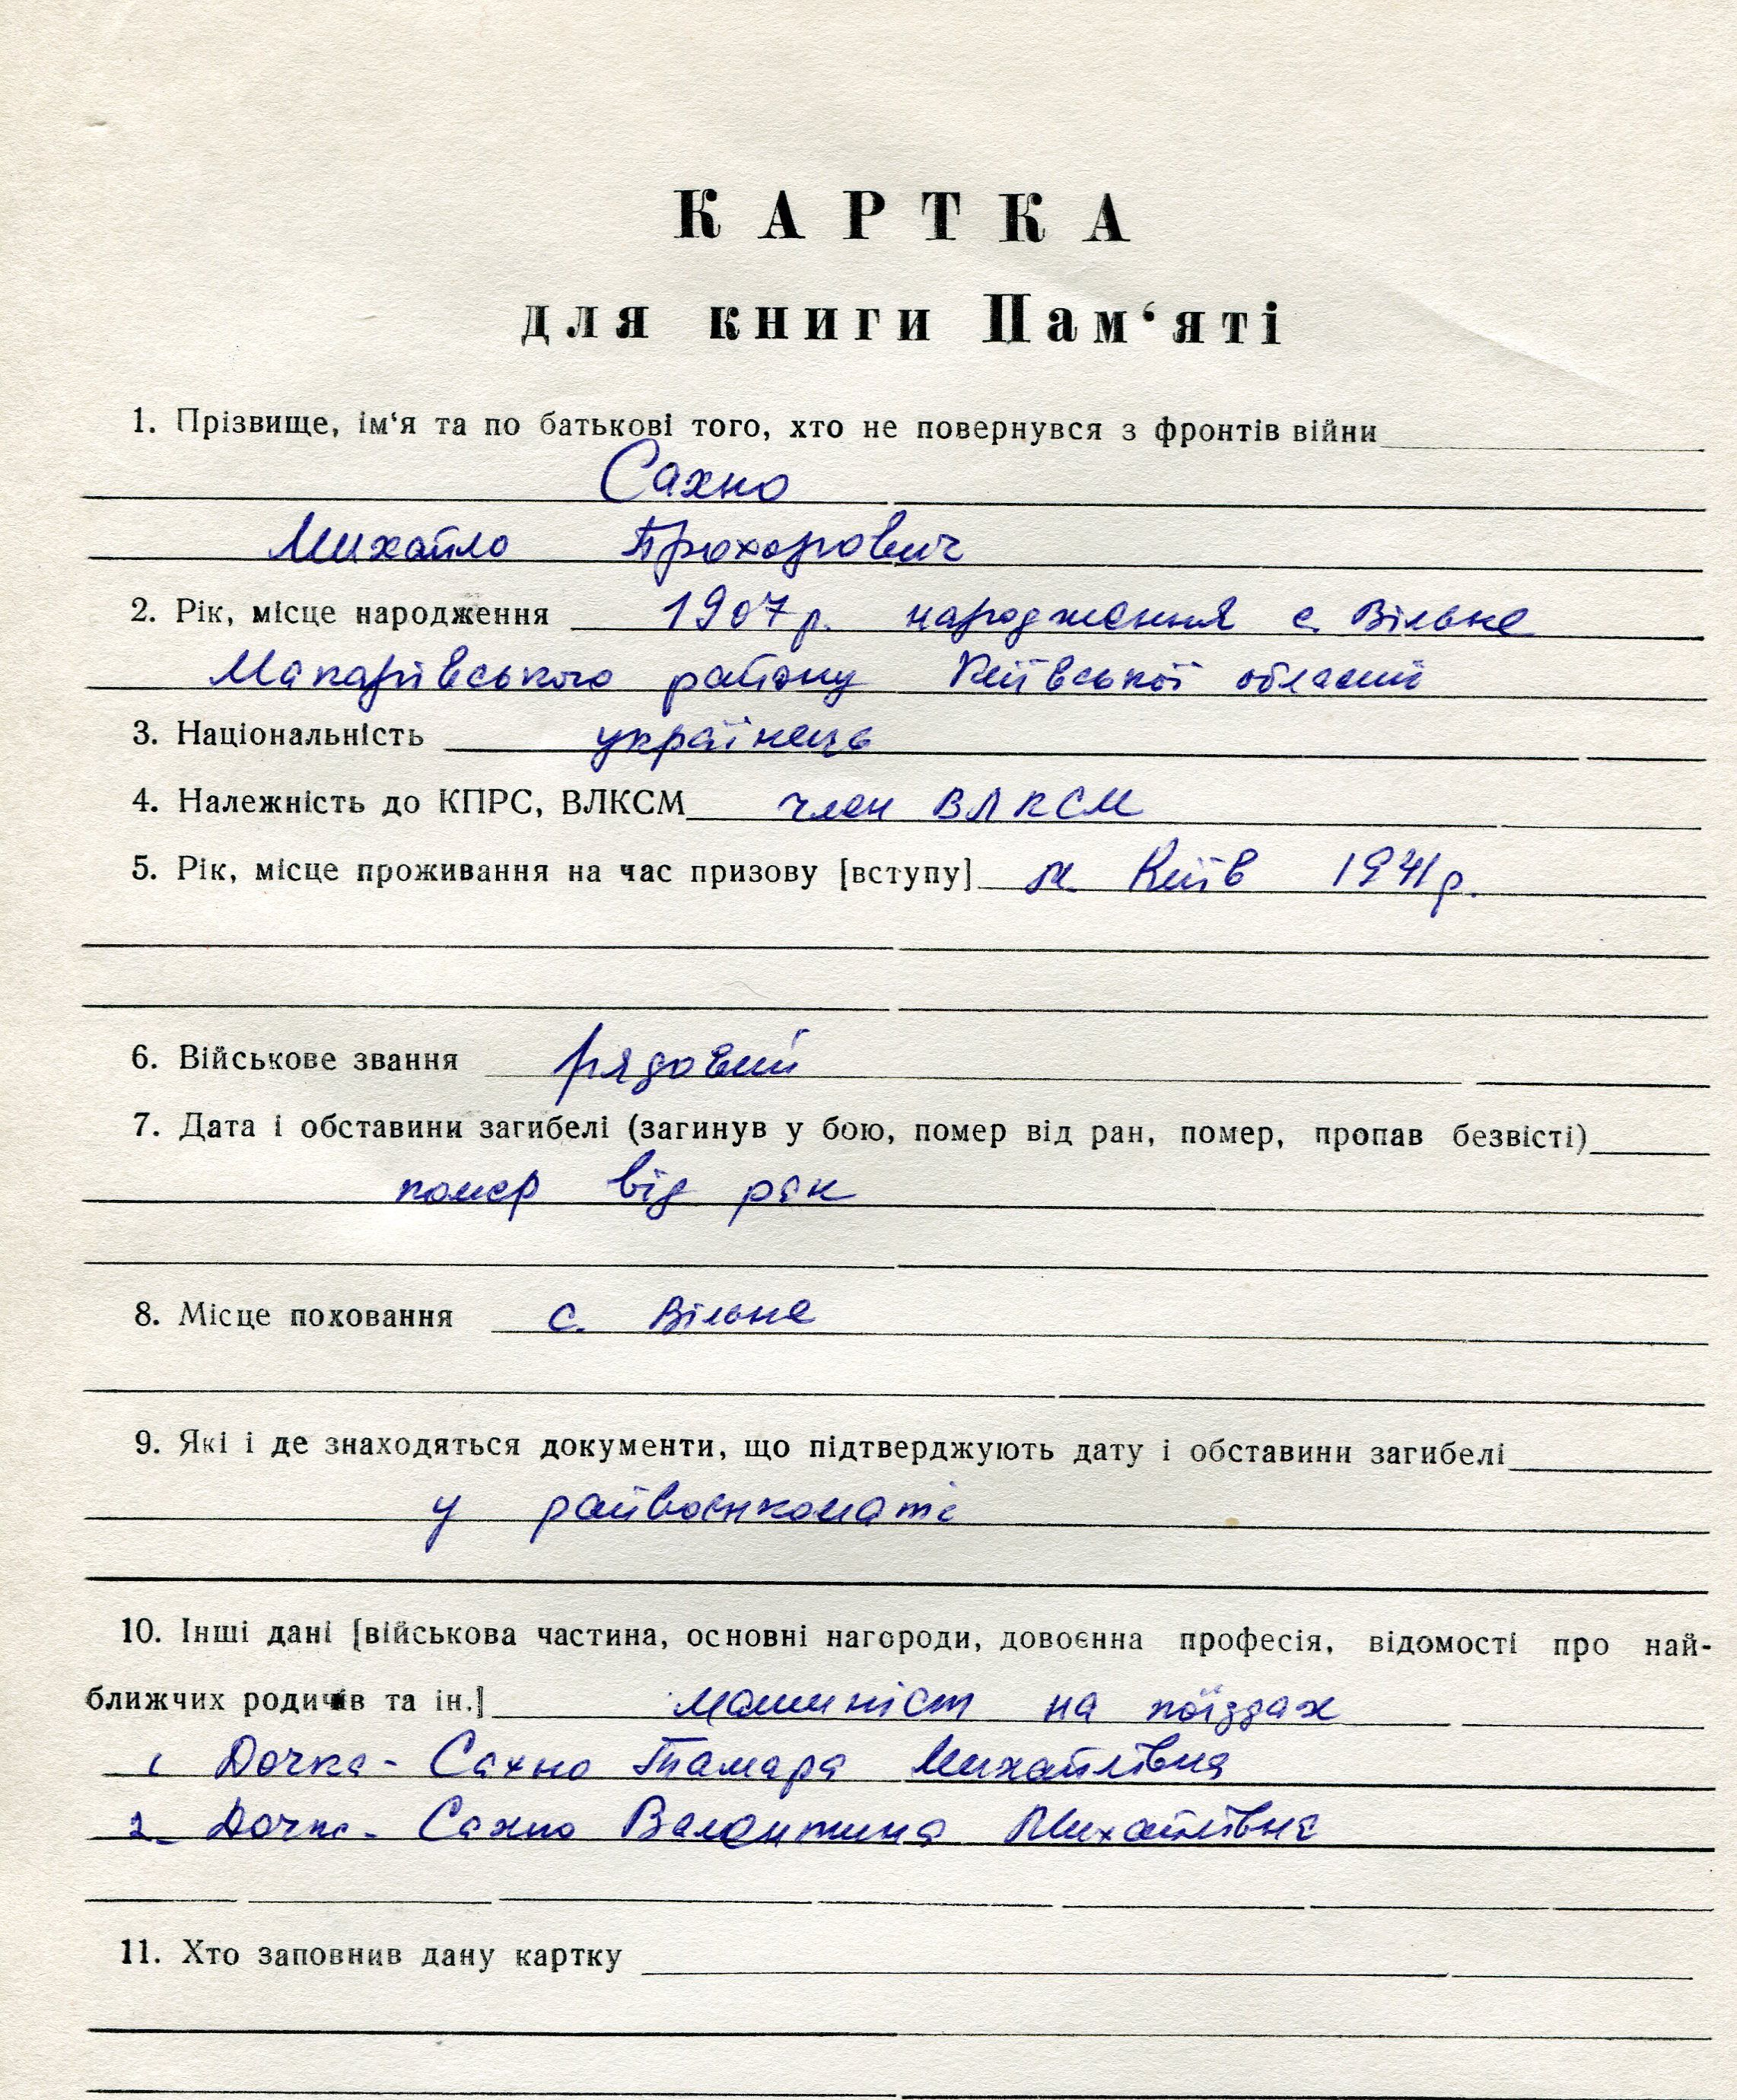 КАРТКА
для книги Пам‘яті
1. Прізвище, ім‘я та по батькові того, хто не повернувся з фронтів війни
Сахно
Михайло Прохорович
2. Рік, місце народження 1907 р. народження с. Вільне
Макарівського району Київської області
3. Національність українець
4. Належність до КПРС, ВЛКСМ член ВЛКСМ
5. Рік, місце проживання на час призову [вступу] м. Київ 1941 р.
6. Військове звання рядовий
7. Дата і обставини загибелі (загинув у бою, помер від ран, помер, пропав безвісті)
помер від ран
8. Місце поховання с. Вільне
9. Які і де знаходяться документи, що підтверджують дату і обставини загибелі
у райвоєнкоматі
10. Інші дані [військова частина, основні нагороди, довоєнна професія, відомості про най-
ближчих родичів та ін.] машиніст на поїздах
1 Дочка - Сахно Тамара Михайлівна
2 - Дочка - Сахно Валентина Михайлівна
11. Хто заповнив дану картку